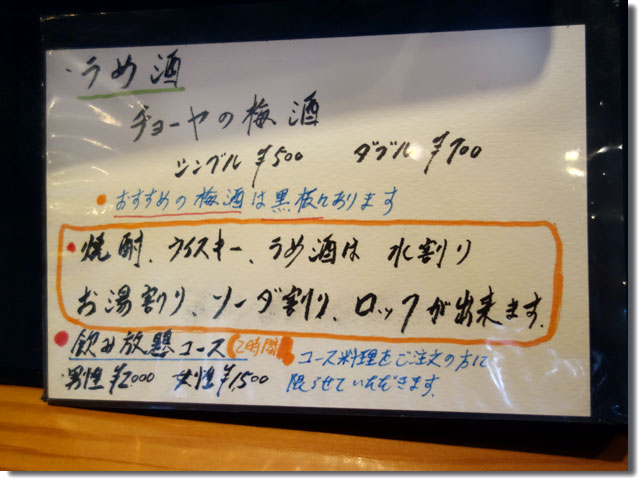 ・うめ酒
チョーヤの梅酒
シングル ¥500 ダブル ¥700
●おすすめの梅酒は黒板にあります
●焼酎、ウイスキー、うめ酒は 水割り
お湯割り、ソーダ割り、ロックが出来ます。
●飲み放題コース 2時間 ●コース料理をご注文の方に
・男性¥2000 女性¥1,500 限らせていただきます。